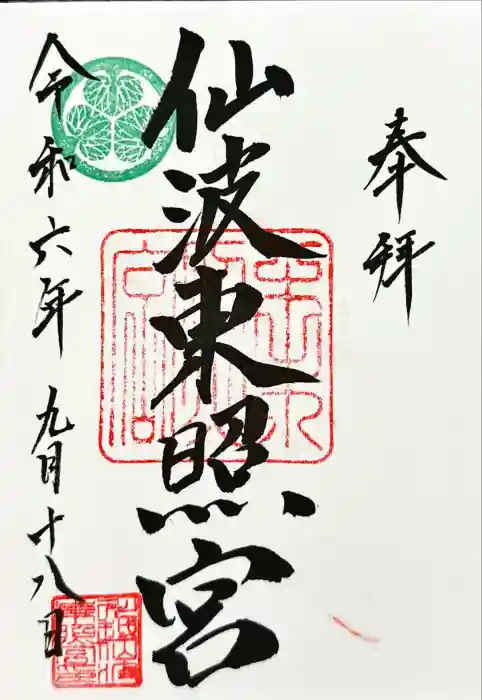 奉拝
仙波東照宮
令和六年 九月十八日